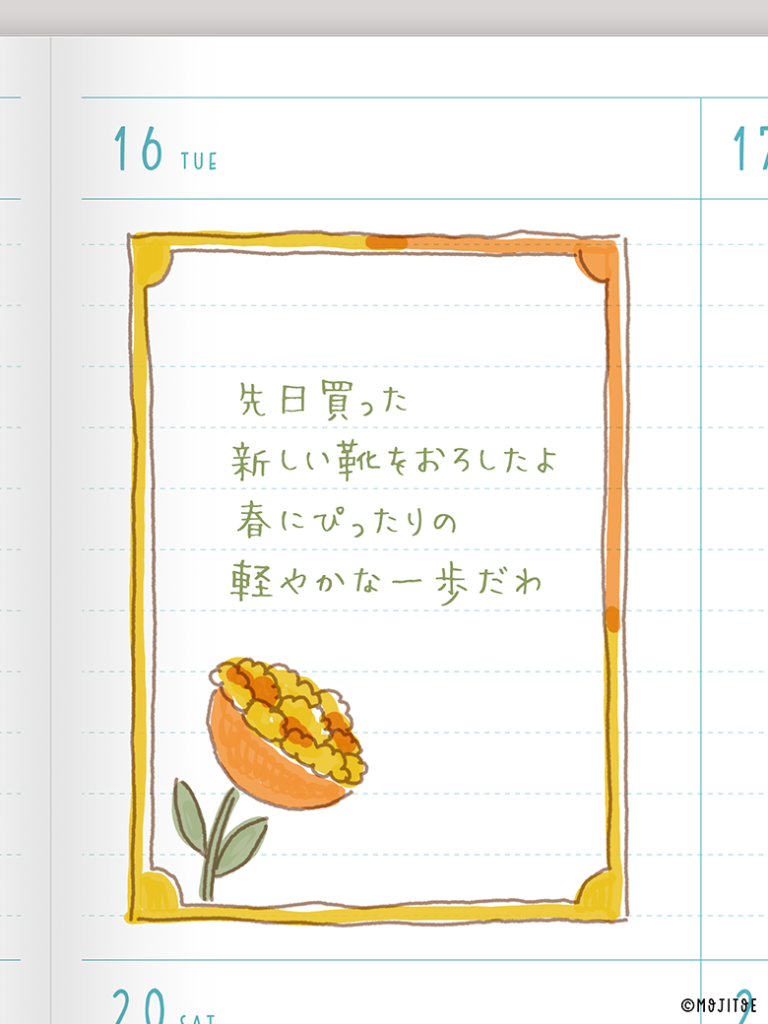 16 TUE
17
先日買った
新しい靴をおろしたよ
春にぴったりの
軽やかな一歩だわ
20 SAT
©M&JIT&E